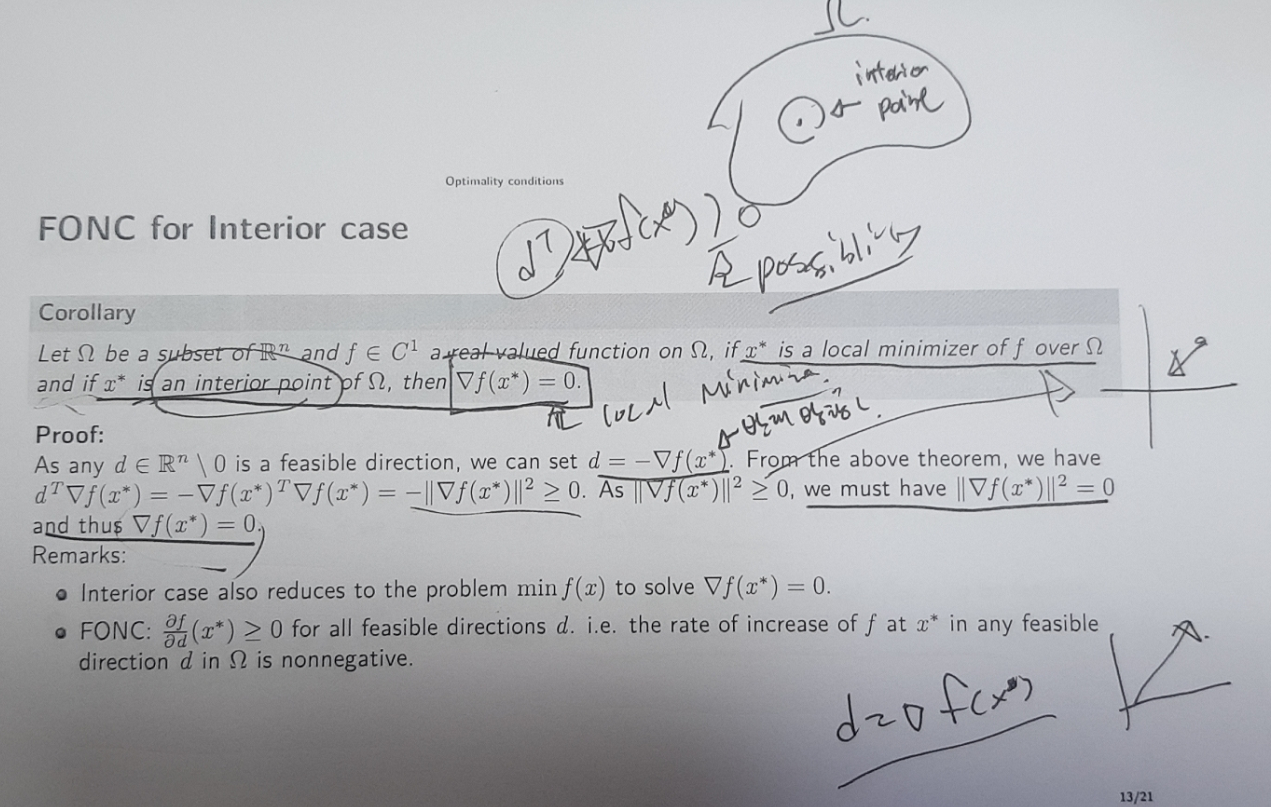 Ω
interior
point
Optimality conditions
FONC for Interior case
dᵀ ∇f(x*) ≥ 0
possiblity
Corollary
Let Ω be a subset of ℝⁿ and f ∈ C¹ a real-valued function on Ω, if x* is a local minimizer of f over Ω
and if x* is an interior point of Ω, then ∇f(x*) = 0.
local minimize.
Proof:
As any d ∈ ℝⁿ \ 0 is a feasible direction, we can set d = −∇f(x*). From the above theorem, we have
dᵀ∇f(x*) = −∇f(x*)ᵀ∇f(x*) = −‖∇f(x*)‖² ≥ 0. As ‖∇f(x*)‖² ≥ 0, we must have ‖∇f(x*)‖² = 0
and thus ∇f(x*) = 0.
Remarks:
• Interior case also reduces to the problem min f(x) to solve ∇f(x*) = 0.
• FONC: ∂f/∂d (x*) ≥ 0 for all feasible directions d. i.e. the rate of increase of f at x* in any feasible
direction d in Ω is nonnegative.
d = ∇f(x*)
13/21